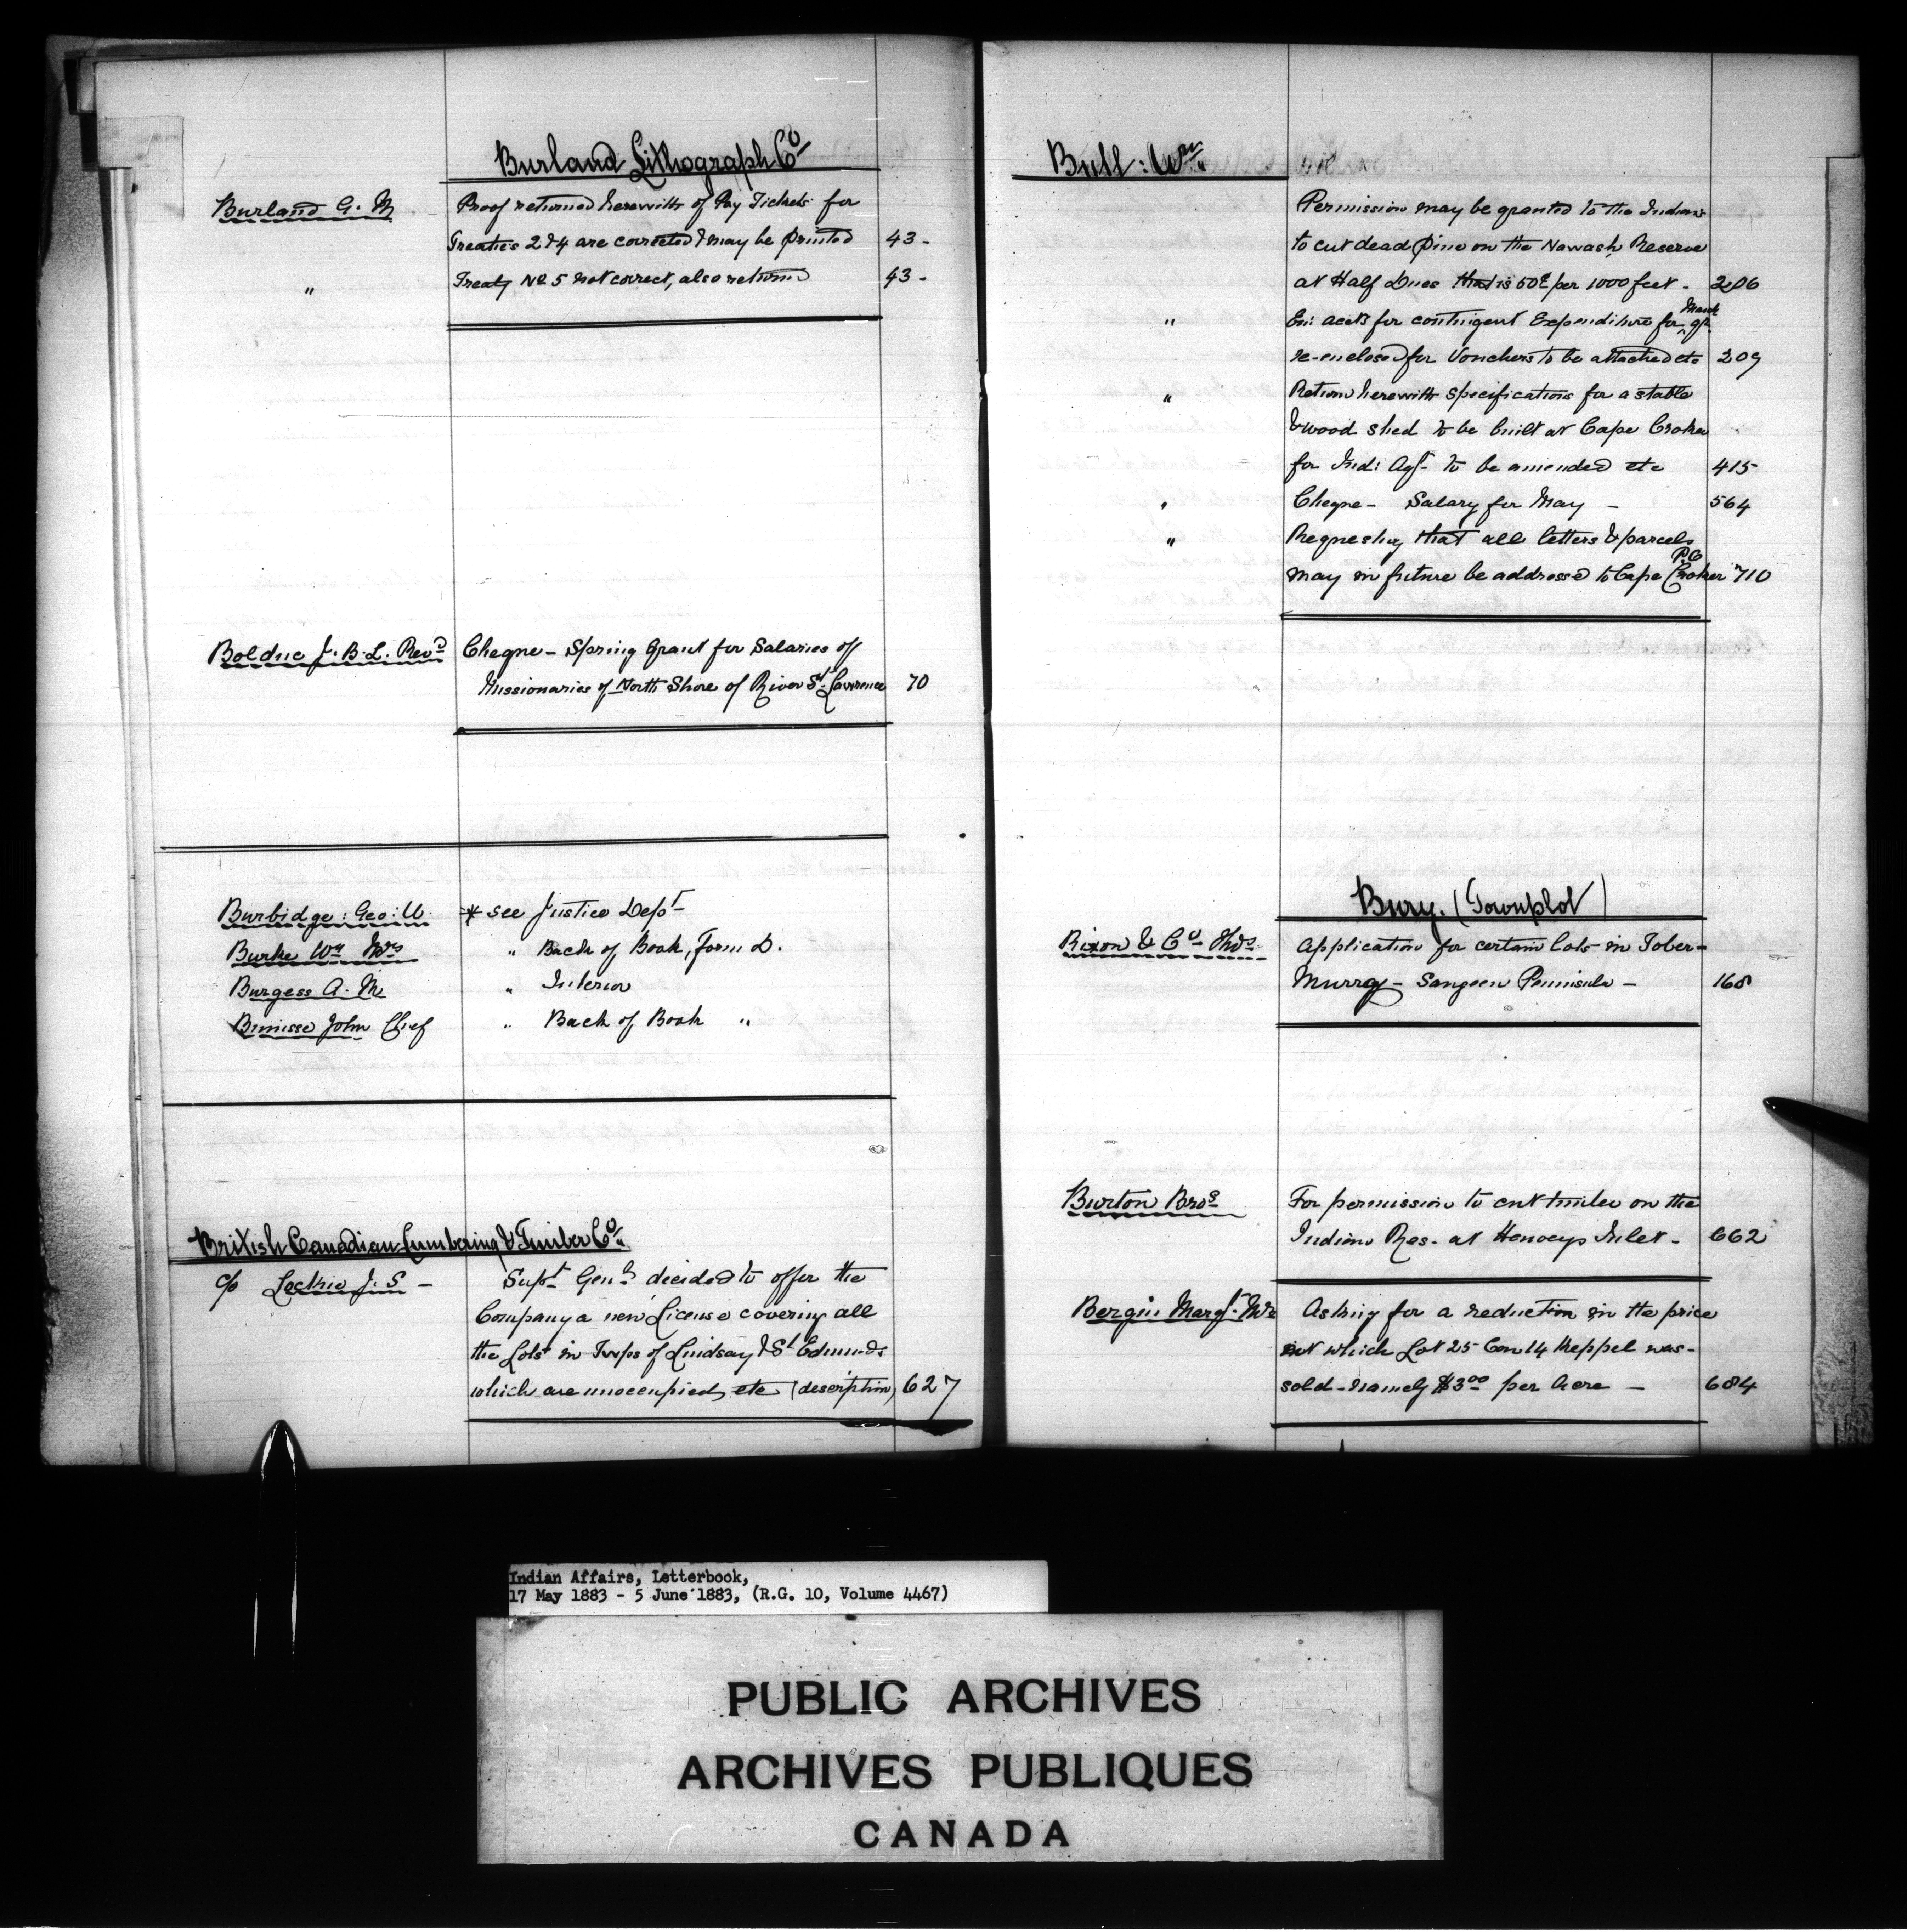 Burland Lithograph Co
Burland G. M Proof returned herewith of Pay Tickets for
Treaties 2 & 4 are corrected & may be printed 43-
" Treaty No 5 not correct, also returned 43-
Boldue J. B. L. Revd Cheque - Spring Grant for Salaries of
Missionaries of North Shore of River St Lawrence 70
Burbidge: Geo: W. * see Justice Dept
Burke Wm Mrs " Back of Book, Form D.
Burgess A. M " Interior
John Chief " Back of Book "
British Canadian Lumbering & Timber Co.
c/o Leckie J. S - Supt Genl decided to offer the
Company a new License covering all
the Lots in Twps of Lindsay & St Edmunds
which are unoccupied, etc (description) 627
Bull: Wm
Permission may be granted to the Indians
to cut dead pine on the Nawash Reserve
at Half Dues that is 50c per 1000 feet - 206
" En: accts for contingent Expenditure for March qr
re-enclosed for Vouchers to be attached etc 209
" Return herewith specifications for a stable
& wood shed to be built at Cape Croker
for Ind: Agt. to be amended etc 415
" Cheque - Salary for May - 564
" Requesting that all letters & parcels
may in future be addressed to Cape Croker P.O 710
Bury. (Townplot)
Rixon & Co Thos Application for certain lots in Tober-
Murray - Saugeen Peninsula - 168
Burton Bros For permission to cut timber on the
Indian Res. at Henveys Inlet - 662
Bergin Margt. Mrs Asking for a reduction in the price
at which Lot 25 Con 14 Keppel was-
sold - namely $3.00 per Acre - 684
Indian Affairs, Letterbook,
17 May 1883 - 5 June 1883, (R.G. 10, Volume 4467)
PUBLIC ARCHIVES
ARCHIVES PUBLIQUES
CANADA